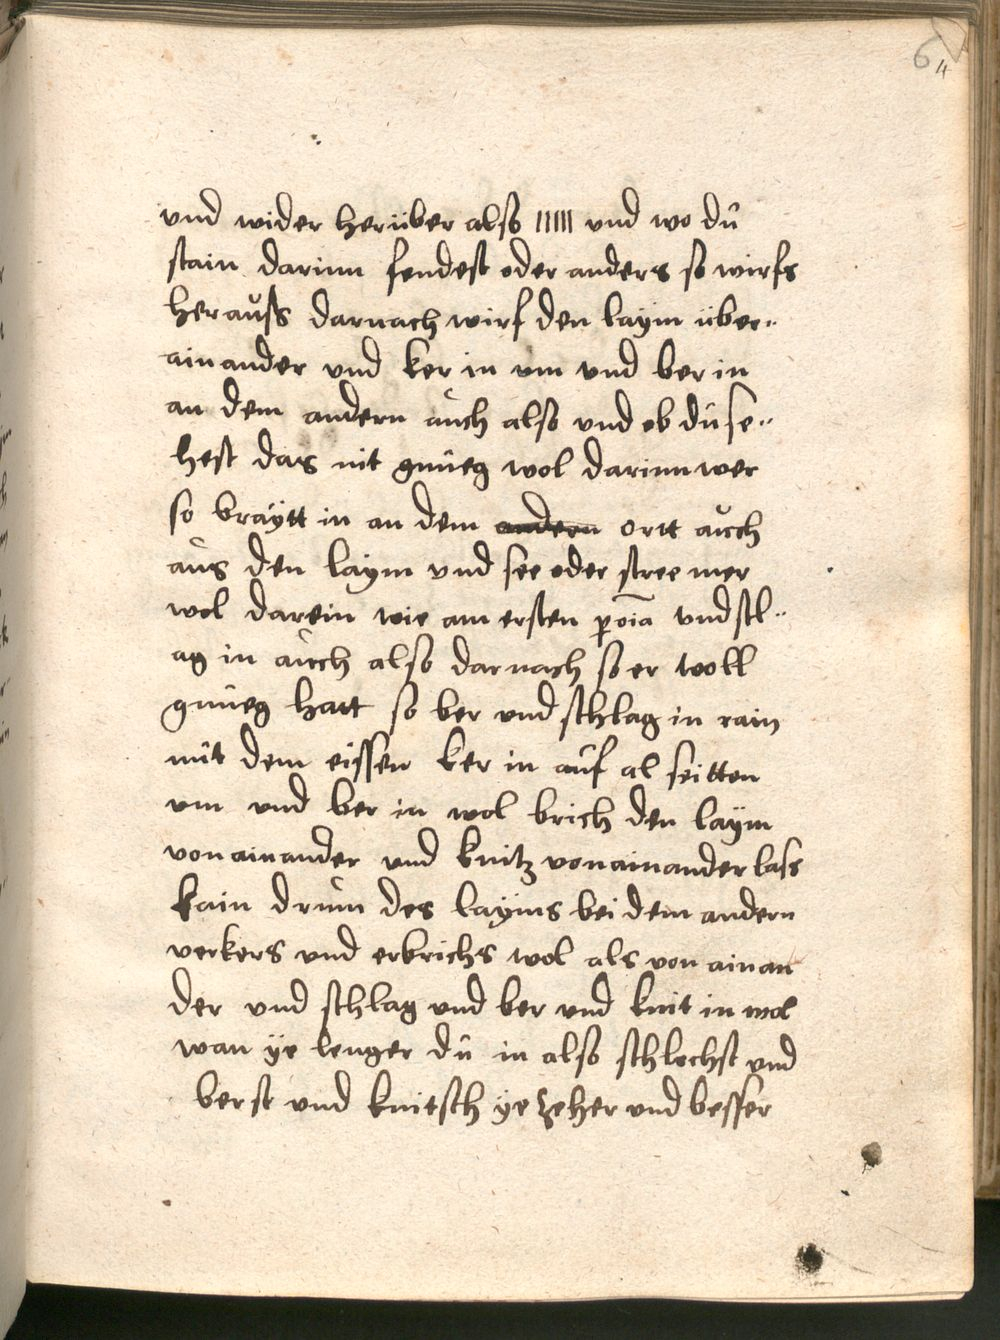 6 4
vnd wider herüber also ///// vnd wo dů
stain darinn fendest oder anders so wirfs
herauſs darnach wirf den laÿm über„
ainander vnd ker in vm vnd ber in
an dem andern aůch also vnd ob dů se„
hest das nit gnůeg wol darinn wer
so braÿtt in an dem andern ortt aůch
aůs den laÿm vnd see oder stree mer
wol darein wie am ersten vnd stl„
ag in aůch also darnach so er woll
gnůeg hatt so ber vnd schlag in rain
mit dem eissen ker in aůf al seitten
vm vnd ber in wol brich den laÿm
von ainander vnd knitz von ainander lass
kain drům des laÿms bei dem andern
verkers vnd erbrichs wol als von ainan
der vnd schlag vnd ber vnd knit in wol
wan ÿe lenger dů in also schlechst vnd
berst vnd knitsch ÿe zeher vnd besser